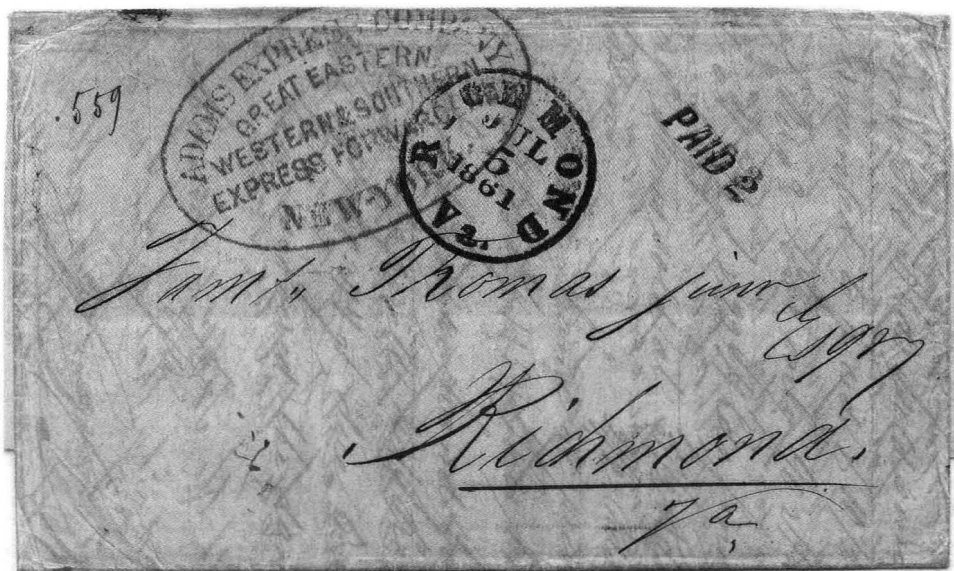 ADAMS EXPRESS COMPANY
GREAT EASTERN
WESTERN & SOUTHERN
EXPRESS FORWARD
NEW-YORK
.559
RICHMOND Va.
JUL
5
1861
PAID 2
Thomas junr
Esqr
Richmond.
Va